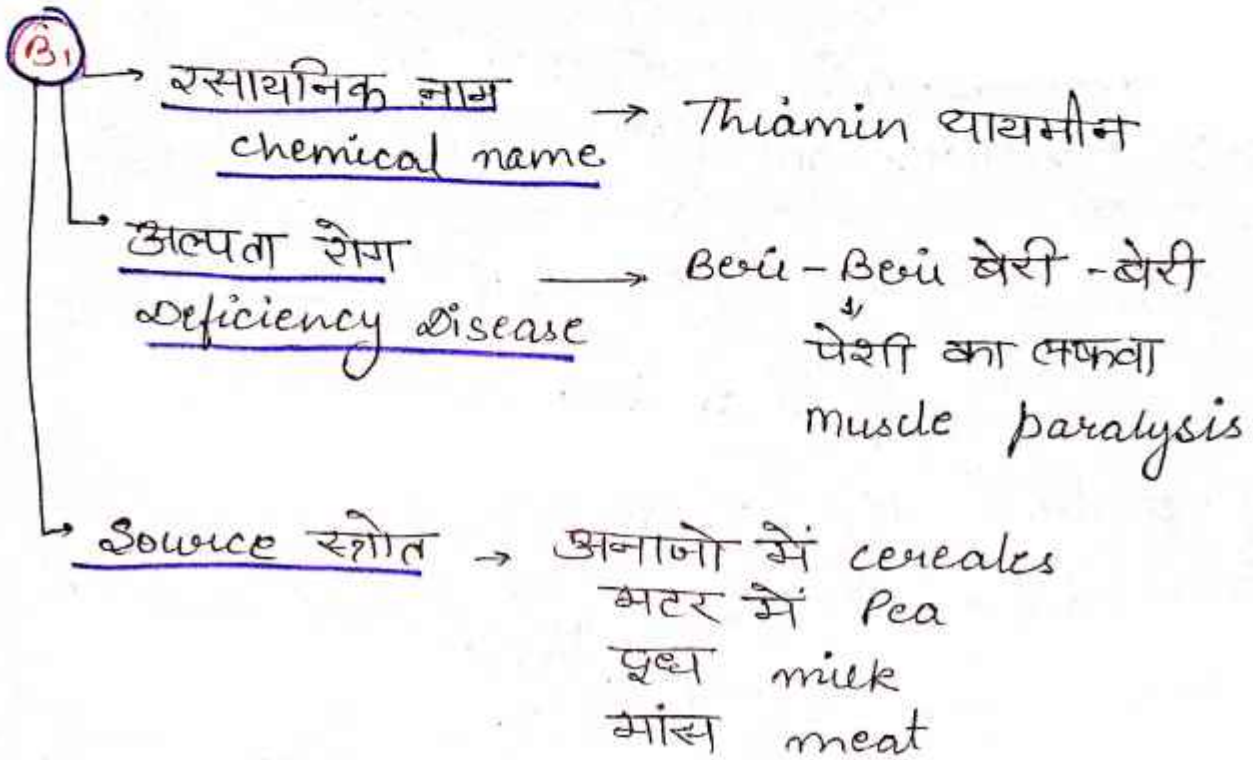 B1
रसायनिक नाम
chemical name → Thiamin थायमीन
अल्पता रोग
Deficiency Disease → Beri-Beri बेरी-बेरी
पेशी का लकवा
muscle paralysis
Source स्त्रोत → अनाजो में cereales
मटर में Pea
दूध milk
मांस meat